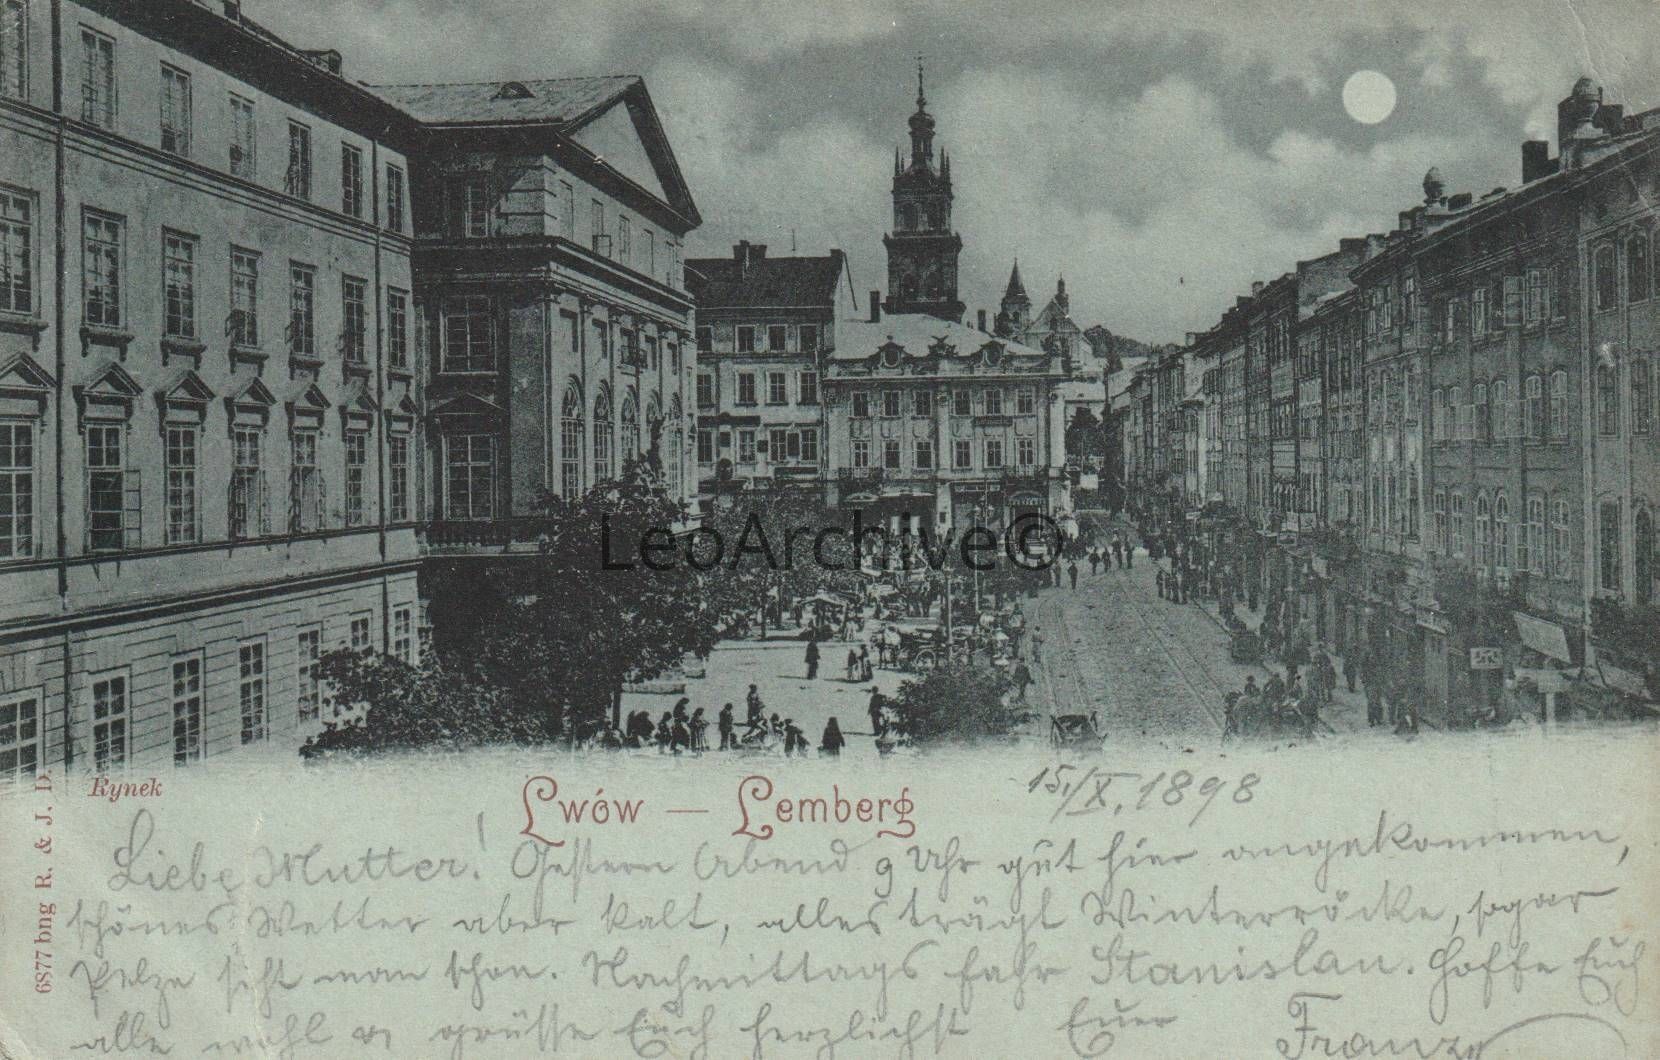 LeoArchive©
Rynek
Lwów — Lemberg
15./X. 1898
6877 bng R. & J. D.
Liebe Mutter! Gestern Abend 9 Uhr gut hier angekommen,
schönes Wetter aber kalt, alles trägt Winterröcke, sogar
Pelze sieht man schon. Nachmittags fahr Stanislau. Hoffe Euch
alle wohl u grüsse Euch herzlichst Euer Franz